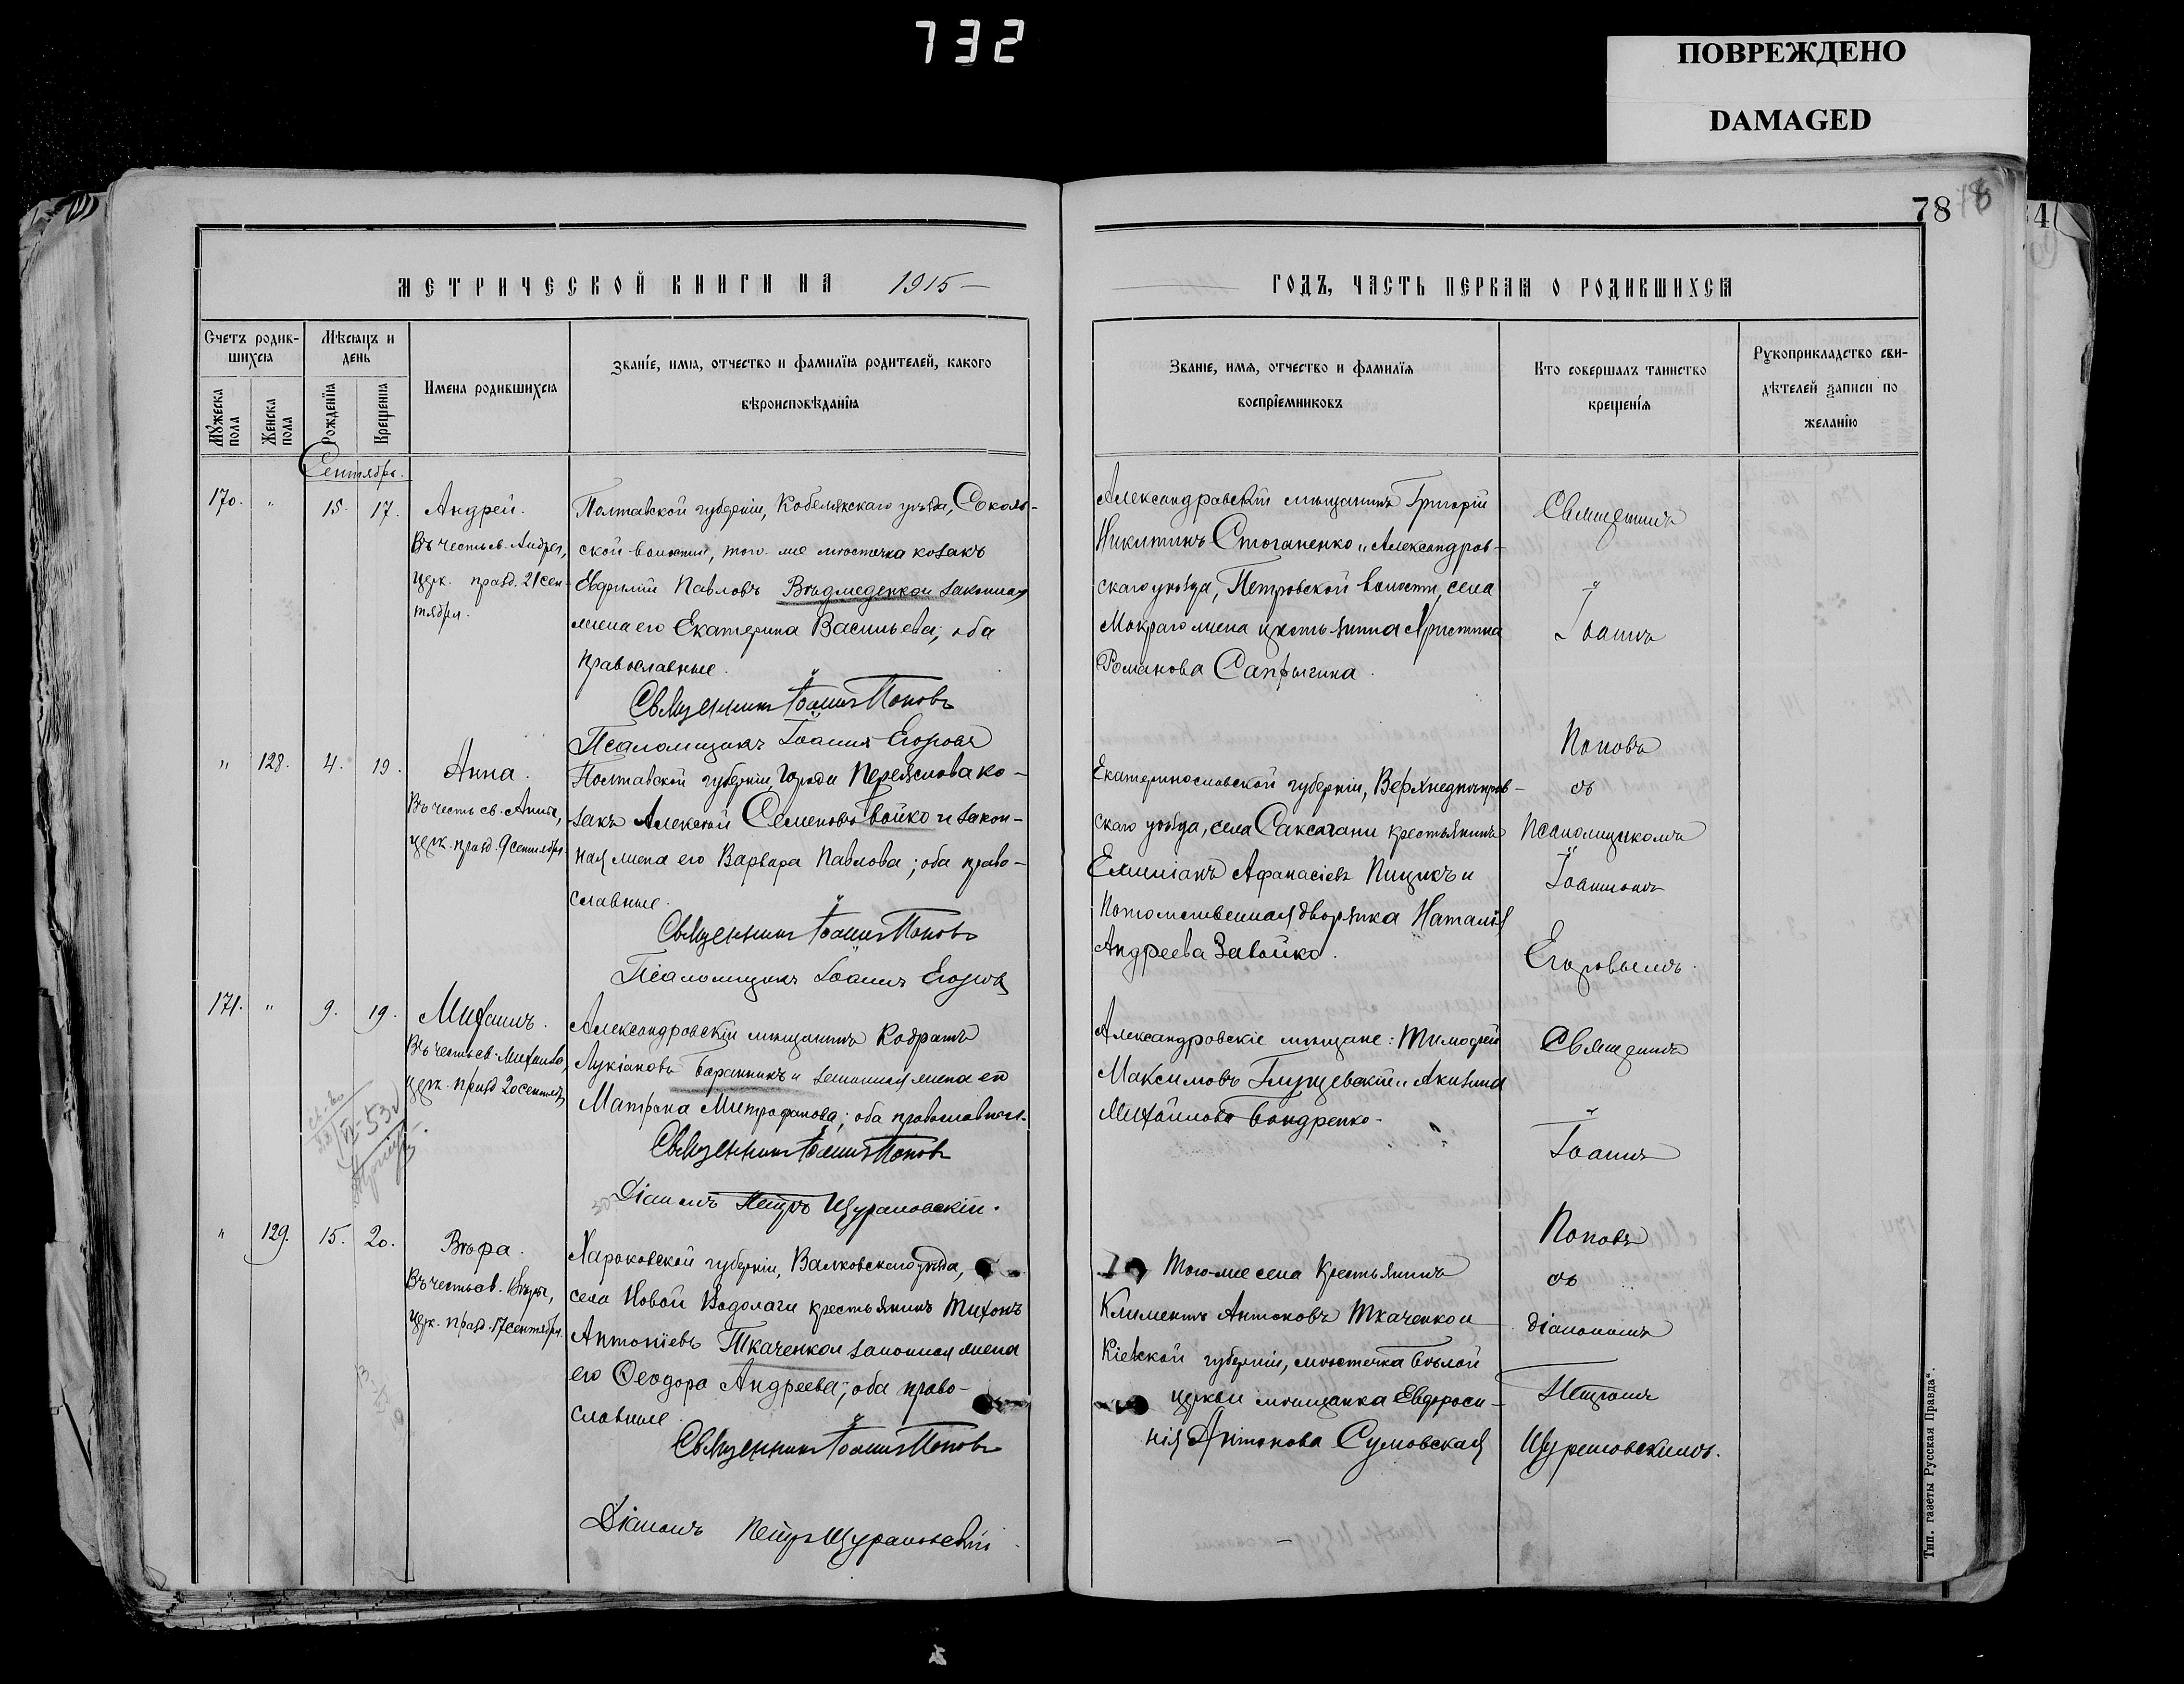 732
ПОВРЕЖДЕНО
DAMAGED
78
78
4
МЕТРИЧЕСКОЙ КНИГИ НА 1915
ГОДЪ, ЧАСТЬ ПЕРВАЯ О РОДИВШИХСЯ
Счетъ родив-
шихся
Мѣсяцъ и
день
Мужеска
пола
Женска
пола
Рожденія
Крещенія
Имена родившихся
Званіе, имя, отчество и фамилія родителей, какого
вѣроисповѣданія
Званіе, имя, отчество и фамилія
воспріемниковъ
Кто совершалъ таинство
крещенія
Рукоприкладство сви-
дѣтелей записи по
желанію
Сентябрь.
170. " 15. 17.
Андрей.
Въ честь св. Андрея,
церк. празд. 21 сен-
тября.
Полтавской губерніи, Кобелякскаго уѣзда, Соколь-
ской волости, того-же мѣстечка козакъ
Евфимій Павловъ Вѣдмеденко и законная
жена его Екатерина Васильева; оба
православные.
Священникъ Іоаннъ Поповъ
Псаломщикъ Іоаннъ Егоровъ
Александровскій мѣщанинъ Григорій
Никитинъ Стоганенко и Александров-
скаго уѣзда, Петровской волости, села
Мокраго жена крестьянина Христина
Романова Сапрыгина.
Священникъ
Іоаннъ
Поповъ
съ
псаломщикомъ
Іоанномъ
Егоровымъ.
" 128. 4. 19.
Анна.
Въ честь св. Анны,
церк. празд. 9 сентября.
Полтавской губерніи, города Переяслова ко-
закъ Алексѣй Семеновъ Бойко и закон-
ная жена его Варвара Павлова; оба право-
славные.
Священникъ Іоаннъ Поповъ
Псаломщикъ Іоаннъ Егоровъ
Екатеринославской губерніи, Верхнеднѣпров-
скаго уѣзда, села Саксагани крестьянинъ
Емиліанъ Афанасіевъ Пицикъ и
потомственная дворянка Наталія
Андреева Завойко.
171. " 9. 19.
Михаилъ.
Въ честь св. Михаила,
церк. празд. 20 сентября
Александровскій мѣщанинъ Кодратъ
Лукіановъ Баранникъ и законная жена его
Матрона Митрофанова; оба православные.
Священникъ Іоаннъ Поповъ
Діаконъ Петръ Щурановскій.
Александровскіе мѣщане: Тимофей
Максимовъ Глущевскій и Акилина
Михайлова Бондренко.
Священникъ
Іоаннъ
Поповъ
съ
діакономъ
Петромъ
Щурановскимъ.
" 129. 15. 20.
Вѣра.
Въ честь св. Вѣры,
церк. празд. 17 сентября.
Харьковской губерніи, Валковскаго уѣзда,
села Новой Водолаги крестьянинъ Тихонъ
Антоніевъ Ткаченко и законная жена
его Ѳеодора Андреева; оба право-
славные.
Священникъ Іоаннъ Поповъ
Діаконъ Петръ Щурановскій
Того-же села крестьянинъ
Климентъ Антоновъ Ткаченко и
Кіевской губерніи, мѣстечка Бѣлой
церкви мѣщанка Евфроси-
нія Антонова Сумовская
Тип. газеты „Русская Правда“.